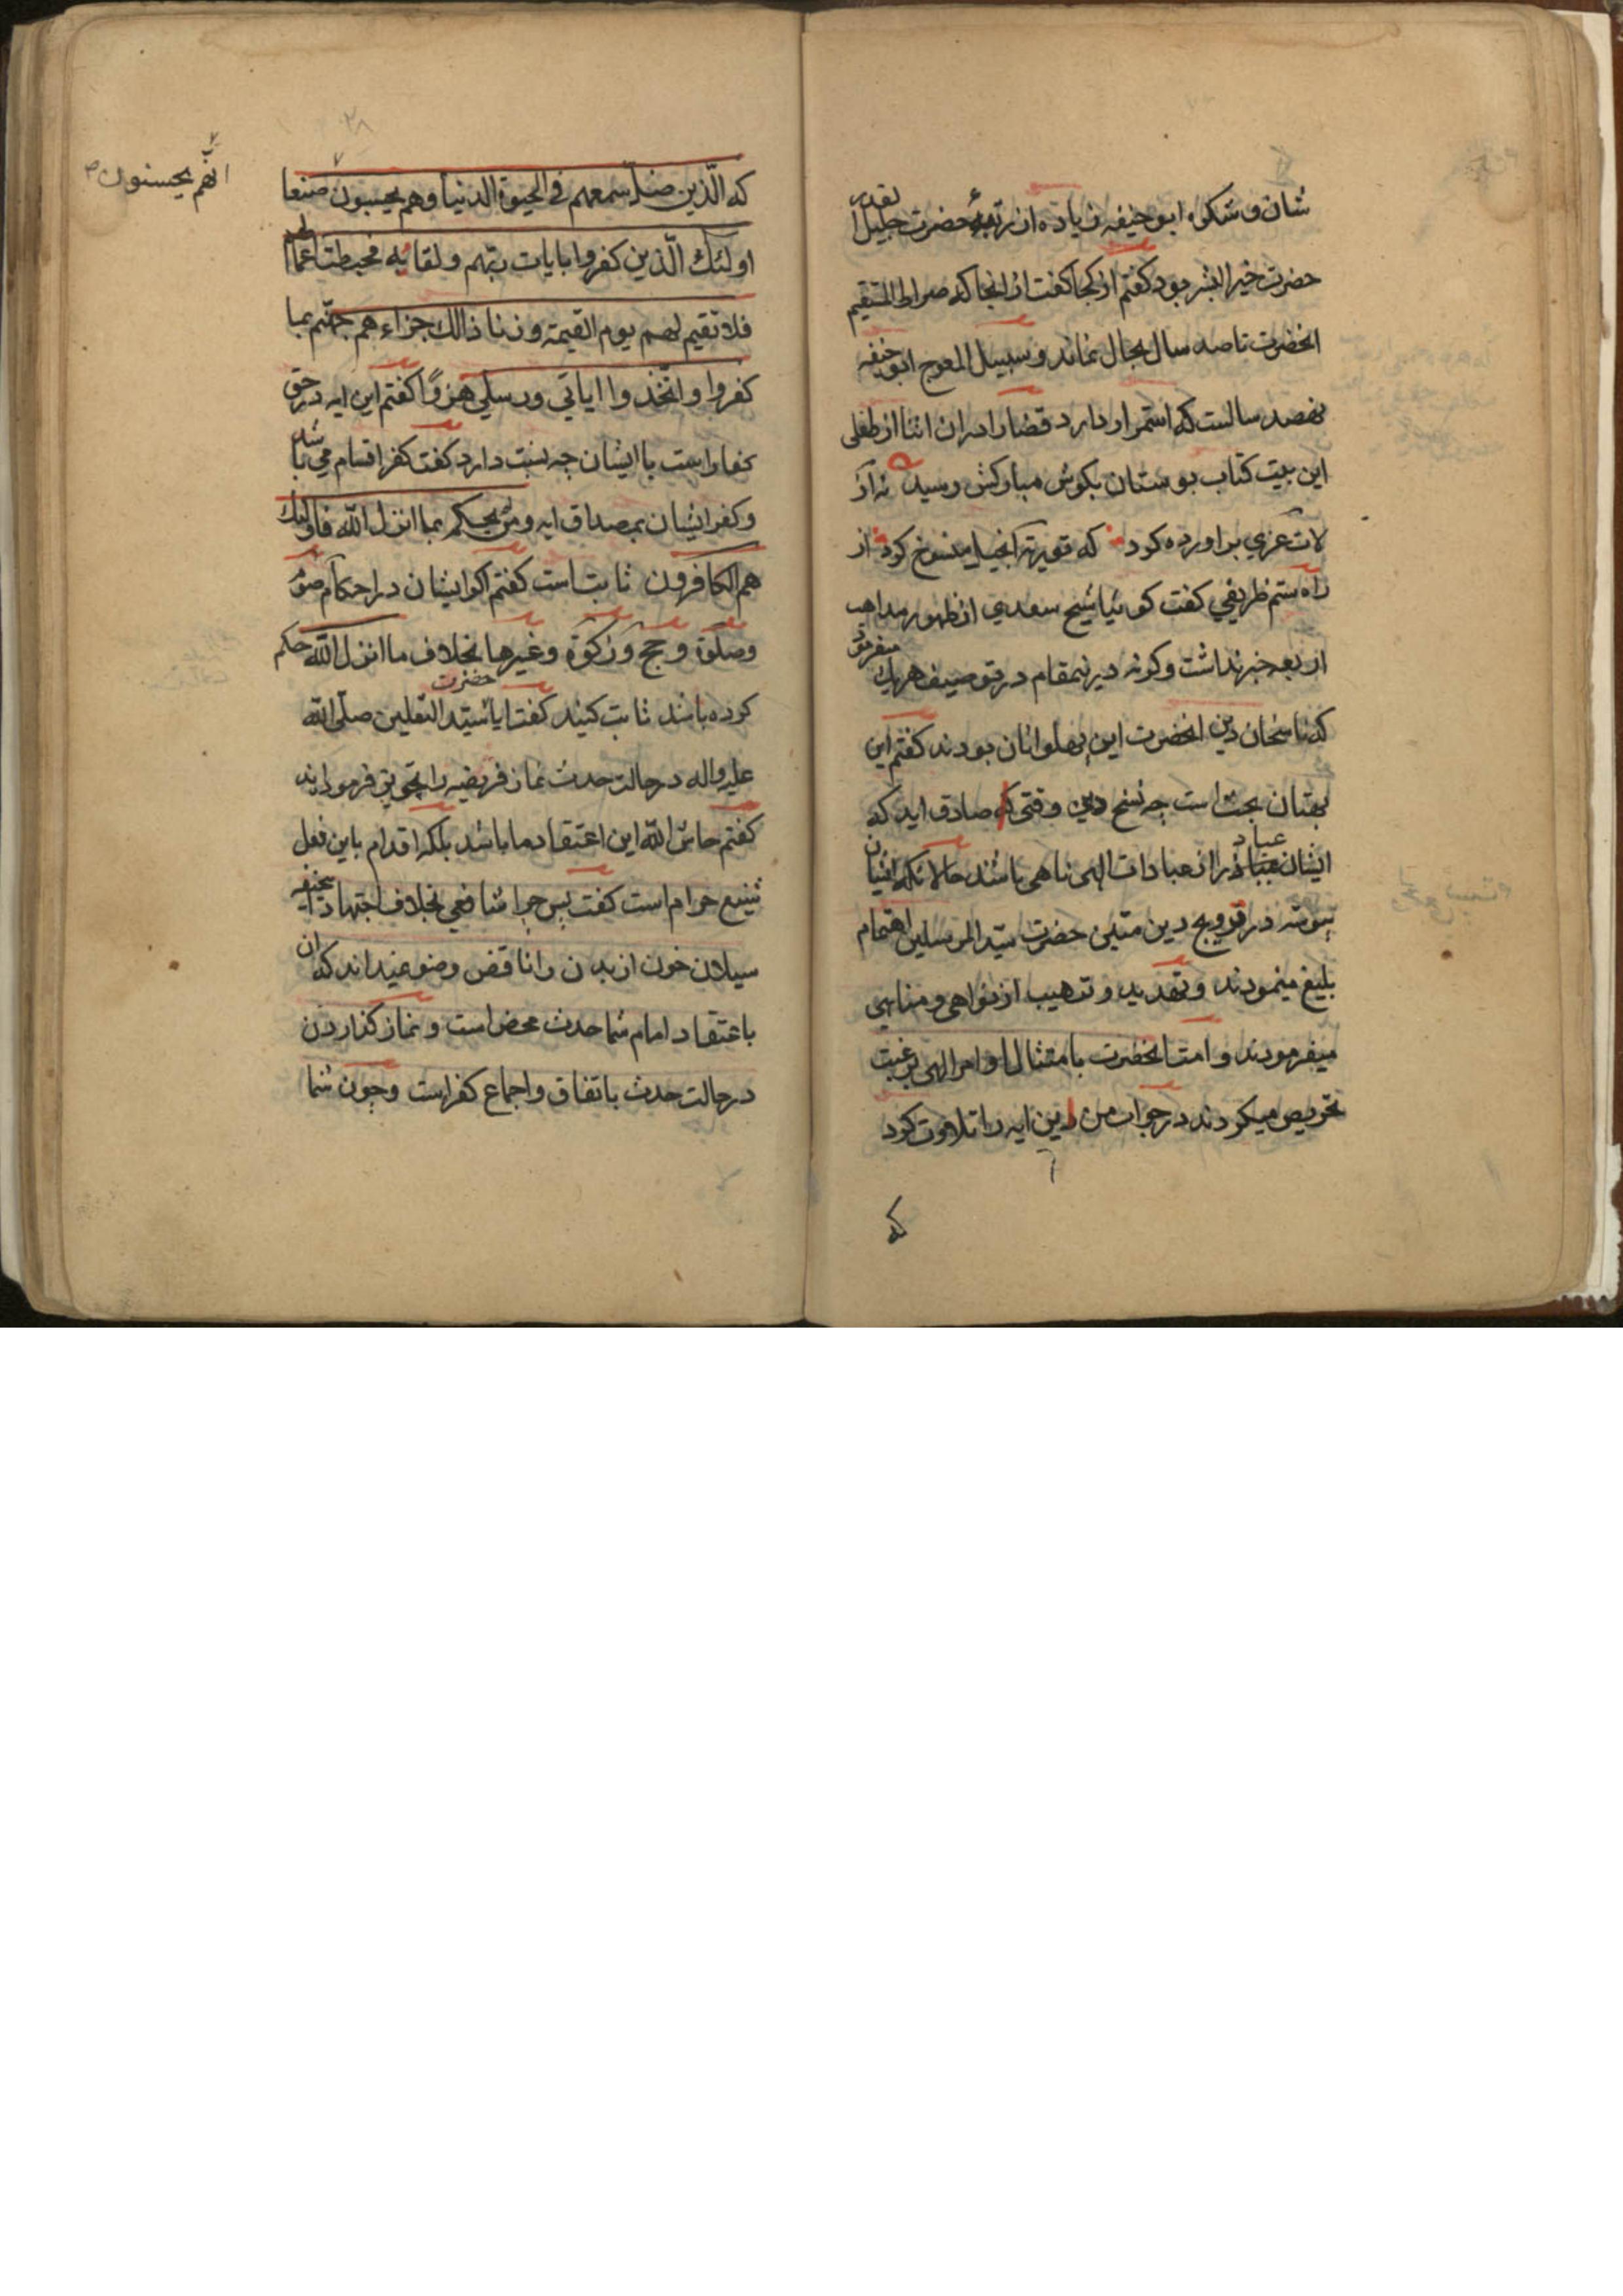 شان و شکوه ابو حنیفه زیاده از رتبهٔ حضرت جلیل القدر
حضرت خیر البشر بود گفتم از کجا گفت از انجا که صراط المستقیم
انحضرت تا صد سال بحال نماند و سبیل المعوج ابو حنیفه
نهصد سالست که استمرار دارد قضا را دران اثنا از طفلی
این بیت کتاب بوستان بکوش مبارکش رسید نه از
لات عزی براورده کرد که توریة انجیل منسوخ کرد از
راه ستم ظریفی گفت کوئیا شیخ سعدی از ظهور مذاهب
اربعه خبر نداشت وکرنه درینمقام در توصیف هریک میفرمود
که ناسخان دین انحضرت این پهلوانان بودند گفتم این
بهتان بحت است چه نسخ دین وقتی که صادق اید که
ایشان عباد را از عبادات الهی ناهی باشند حالانکه ایشان
پیوسته در ترویج دین متین حضرت سید المرسلین اهتمام
بلیغ مینمودند و تهدید و تدهیب از نواهی و مناهی
میفرمودند و امت انحضرت بامتثال اوامر الهی ترغیب
تحریص میکردند در جواب من این ایه را تلاوت کرد
که
۲۸
که الّذین ضلّ سعیهم فی الحیوة الدنیا و هم یحسبون صنعا
انّهم یحسنون
اولئک الّذین کفروا بایات ربّهم و لقائه فحبطت اعمالهم
فلا نقیم لهم یوم القیمة وزنا ذالک جزاءهم جهنّم بما
کفروا واتّخذوا ایاتی ورسلی هزوًا گفتم این ایه در حق
کفار است با ایشان چه نسبت دارد گفت کفر اقسام می باشد
و کفر ایشان بمصداق ایه ومن لم یحکم بما انزل الله فاولئک
هم الکافرون ثابت است گفتم اکر ایشان در احکام صوم
وصلوة و حج و زکوة و غیرها بخلاف ما انزل الله حکم
کرده باشند ثابت کنید گفت ایا حضرت سیّد الثقلین صلّی الله
علیه واله در حالت حدث نماز فریضه را تجویز فرموده اند
گفتم حاش الله این اعتقاد ما باشد بلکه اقدام باین فعل
شنیع حرام است گفت پس چرا شافعی بخلاف اجتهاد ابو حنیفه
سیلان خون از بدن را ناقض وضو نمیداند که ان
باعتقاد امام شما حدث محض است و نماز کذاردن
در حالت حدث باتفاق و اجماع کفر است و چون شما